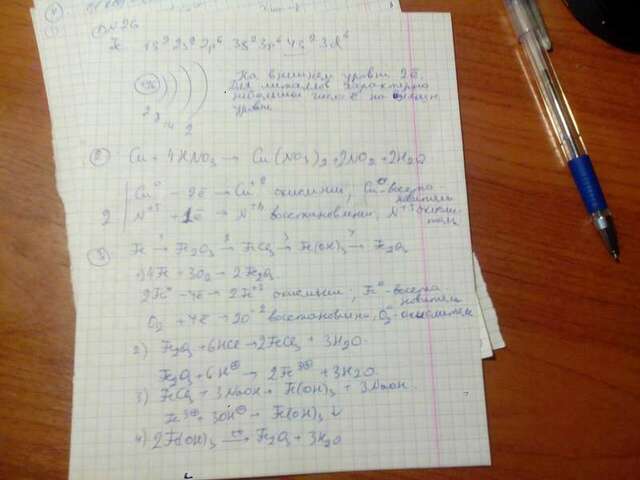 1s² 2s² 2p⁶ 3s² 3p⁶ 4s² 3d⁶
На внешнем уровне 2ē.
Для металлов характерно
небольшое число ē на внешн.
уровне
2 8 14 2
② Cu + 4HNO₃ → Cu(NO₃)₂ + 2NO₂ + 2H₂O
Cu⁰ - 2ē → Cu⁺² окисление, Cu⁰ - восста
новитель
2 N⁺⁵ + 1ē → N⁺⁴ восстановление, N⁺⁵ окисли-
тель
③ Fe → Fe₂O₃ → FeCl₃ → Fe(OH)₃ → Fe₂O₃
1) 4Fe + 3O₂ → 2Fe₂O₃
окисление, Fe⁰ - восста
новитель
O₂ + 4ē → 2O⁻² восстановление, O₂ - окислитель
2) Fe₂O₃ + 6HCl → 2FeCl₃ + 3H₂O
Fe₂O₃ + 6H⊕ → 2Fe³⊕ + 3H₂O
3) FeCl₃ + 3NaOH → Fe(OH)₃ +
Fe³⊕ + 3OH⊖ → Fe(OH)₃ ↓
4) 2Fe(OH)₃ → Fe₂O₃ + 3H₂O